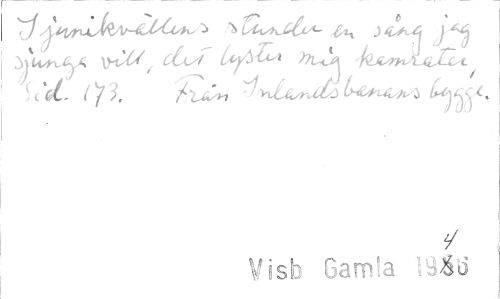 I junikvällens stunder en sång jag
sjunga vill, det lyster mig kamrater,
Sid. 173. Från Inlandsbanans bygge.
4
Visb Gamla 1936